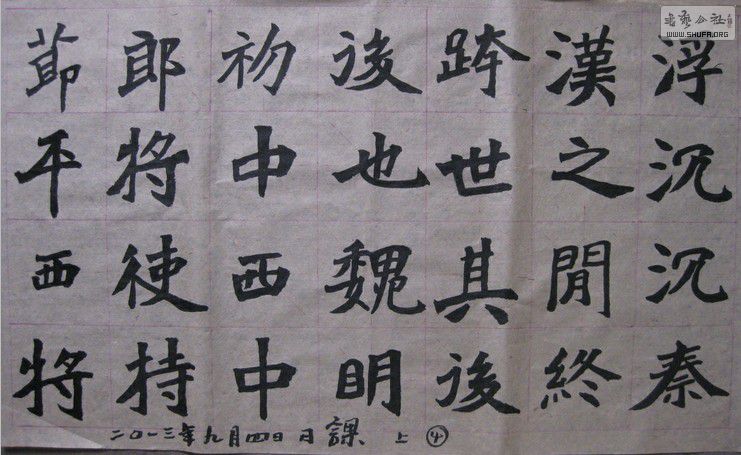 浮沉沉秦
漢之閒終
跨世其後
後也魏眀
初中西中
郎將使持
節平西將
二〇一三年九月四日 日課 上 ④
書藝公社
WWW.SHUFA.ORG